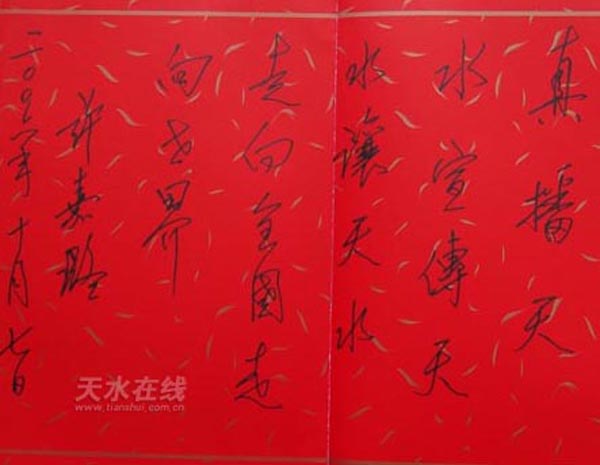 真播天
水宣傳天
水讓天水
走向全國走
向世界
許嘉璐
年十月七日
天水在线
www.tianshui.com.cn